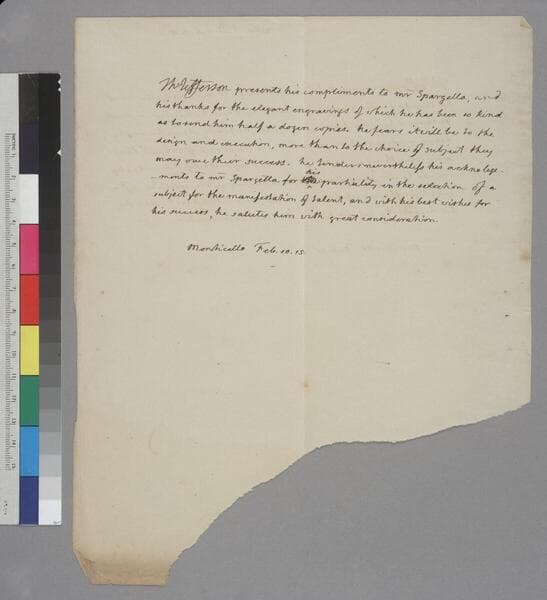 Th: Jefferson presents his compliments to mr Spargella, and
his thanks for the elegant engravings of which he has been so kind
as to send him half a dozen copies. he fears it will be to the
design and execution, more than to the choice of subject they
may owe their success. he tenders nevertheless his acknolege-
-ments to mr Spargella for his prartiality in the selection of a
subject for the manifestation of talent, and with his best wishes for
his success, he salutes him with great consideration.
Monticello Feb. 10. 15.